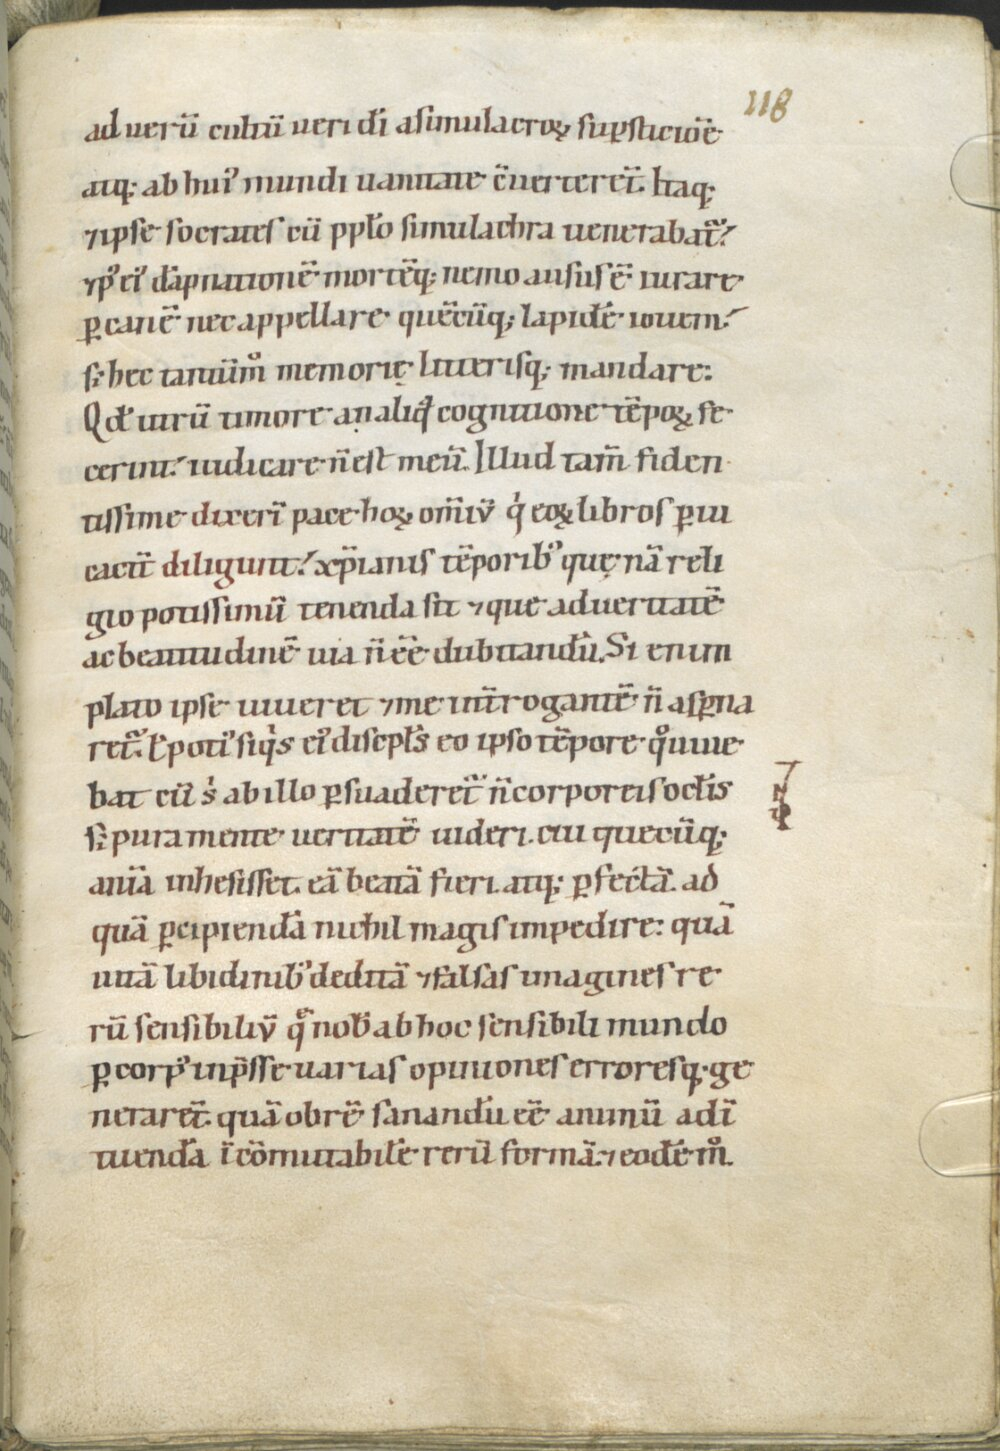 118
ad uerū cultū ueri dī a simulacroꝝ suꝑsticiōe
atq; ab hui᾽ mundi uanitate c̄uerteret̄. Itaq;
⁊ ipse socrates cū pplō simulachra uenerabat᷑.
⁊ p᾽ ei᾽ dāpnationē mortēq; nemo ausus ē iurare
ꝑ canē nec appellare quēcūq; lapidē iouem.
s; hec tantūm̊ memorię litterisq; mandare:
Qđ utrū timore an aliq̄ cognitione tēpoꝝ fe
cerint. iudicare n̄ est meū. Illud tam̄ fiden
tissime dixerī pace hoꝝ om̄iū qͥ eoꝝ libros ꝑui
caciť diligunt. xp̄ianis tēporib᾽ quę nā reli
gio potissimū tenenda sit ⁊ que ad ueritatē
ac beatitudinē uia n̄ eē dubitandū. Si enim
plato ipse uiueret ⁊ me int̄rogantē n̄ asꝑna
ret᷑. ł poti᾽ siqͥs ei᾽ discipłs eo ipso tēpore q̊ uiue
bat cū s᾽ ab illo ꝑsuaderet᷑ n̄ corporeis oclis
s; pura mente ueritatē uideri. cui quecūq;
anīa inhesisset. eā beatā fieri. atq; ꝑfectā. ad
quā ꝑcipiendā nichil magis impedire: quā
uitā libidinib᾽ deditā ⁊ falsas imagines re
rū sensibiliū qͤ nob̄ ab hoc sensibili mundo
ꝑ corp᾽ inp̄sse uarias opiniones erroresq; ge
nerarēt. quā ob rē sanandū eē animū ad ī
tuendā īcōmutabilē rerū formā. ⁊ eodē m̊.